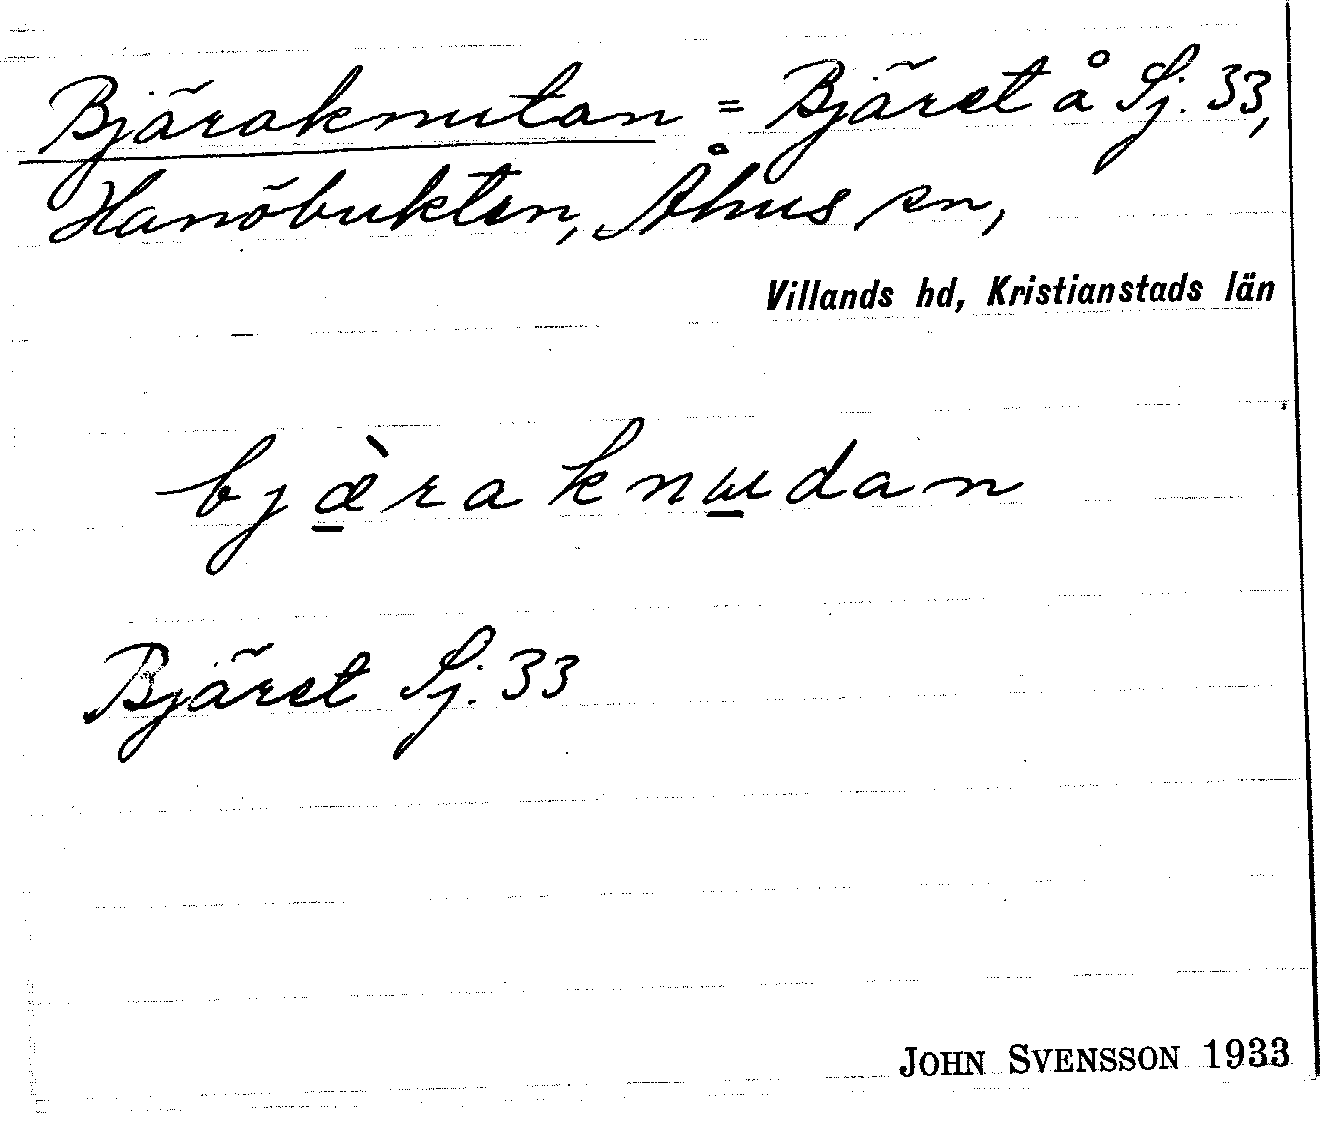 Bjäraknutan = Bjäret å Sj. 33,
Hanöbukten, Åhus sn,
Villands hd, Kristianstads län
bjæ̠̀raknɯ̠dan
Bjäret Sj. 33
JOHN SVENSSON 1933